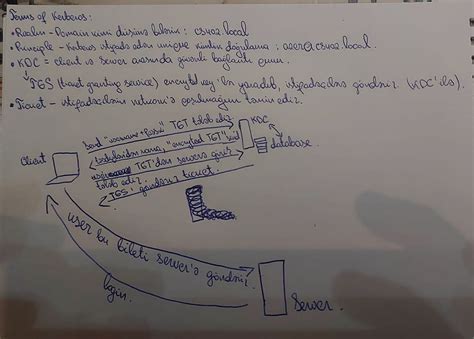 Terms of Kerberos:
• Realm - Domain kimi düşünə bilərik: csw02.local
• Principle - Kerberos istifadə edən unique kimlik doğrulama: user@csw02.local.
• KDC = client və server arasında güvənli bağlantı qurur.
TGS (ticket granting service) encrypted key'lər yaradıb, istifadəçilərə göndərir. (KDC ilə).
• Ticket - istifadəçilərin network'ə qoşulmağını təmin edir.
Send "username + Passw" TGT tələb edir
KDC
database
Client
"encrypted TGT" send
TGT'dən serverə giriş
tələb edir
TGS göndərir ticket.
user bu bileti server'ə göndərir.
login.
Server